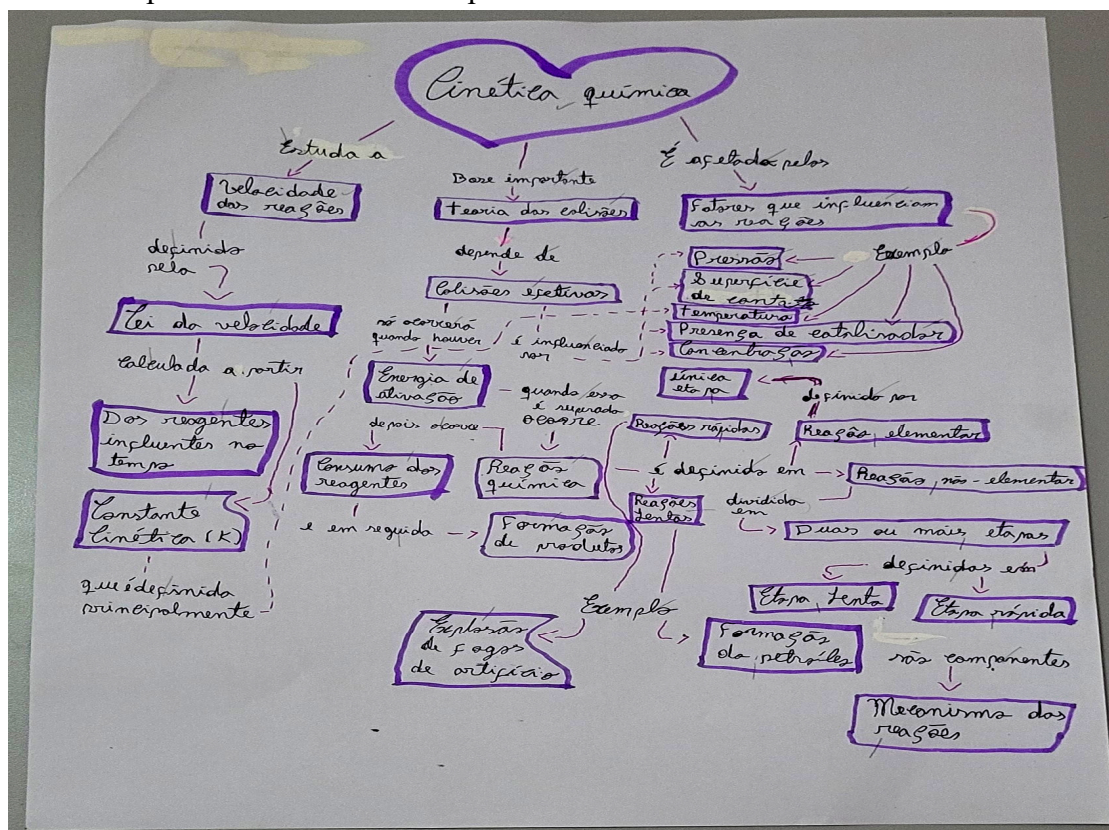 Cinética química
Estuda a
Velocidade
das reações
definida
pela
Lei da velocidade
Calculada a partir
Dos reagentes
influentes no
tempo
Constante
Cinética (K)
que é definida
principalmente
Base importante
Teoria das colisões
depende de
Colisões efetivas
só ocorrerá
quando houver
é influenciado
por
Energia de
ativação
quando essa
é superada
ocorre
depois ocorre
Consumo dos
reagentes
Reação
química
e em seguida
Formação
de produtos
É afetada pelos
Fatores que influenciam
as reações
Exemplo
Pressão
Superfície
de contato
Temperatura
Presença de catalisador
Concentração
única
etapa
definida por
Reações rápidas
Reação elementar
é definida em
Reação não-elementar
Reações
Lentas
dividida
em
Duas ou mais etapas
definidas em
Etapa Lenta
Etapa rápida
Exemplo
Explosão
de fogos
de artifício
Formação
do petróleo
são componentes
Mecanismo das
reações